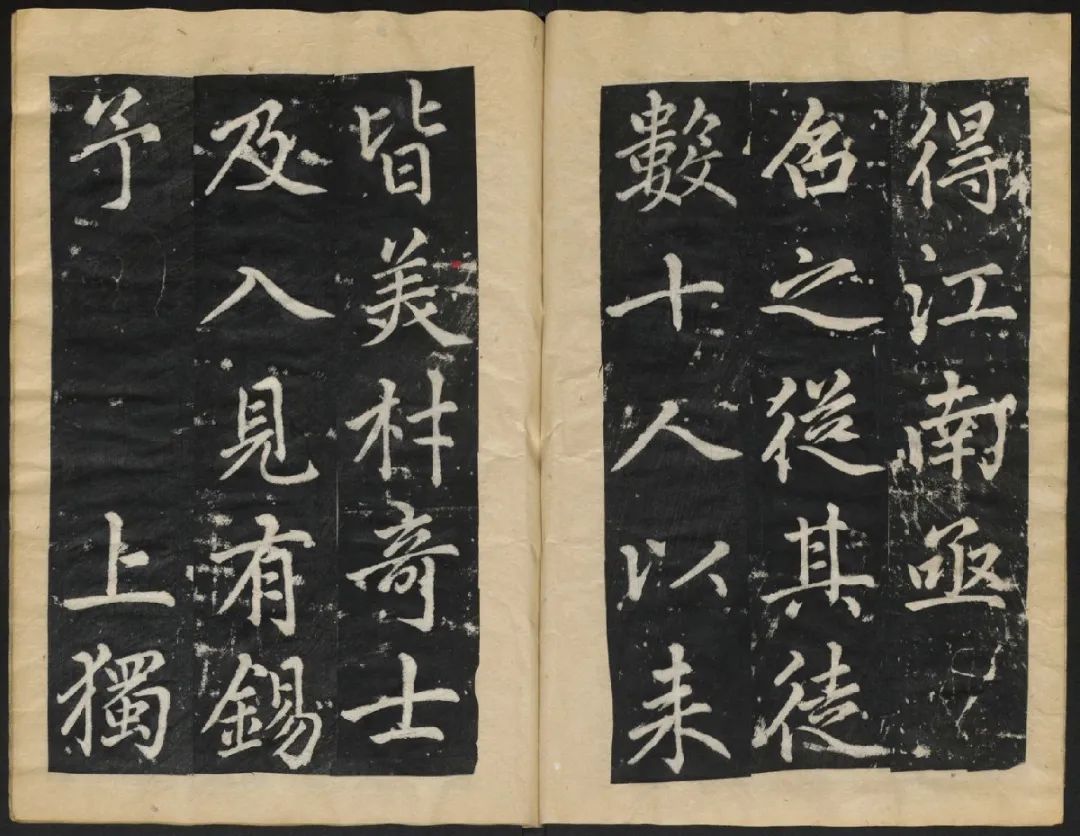 得江南亟
召之從其徒
數十人以来
皆美材竒士
及入見有錫
予　上獨